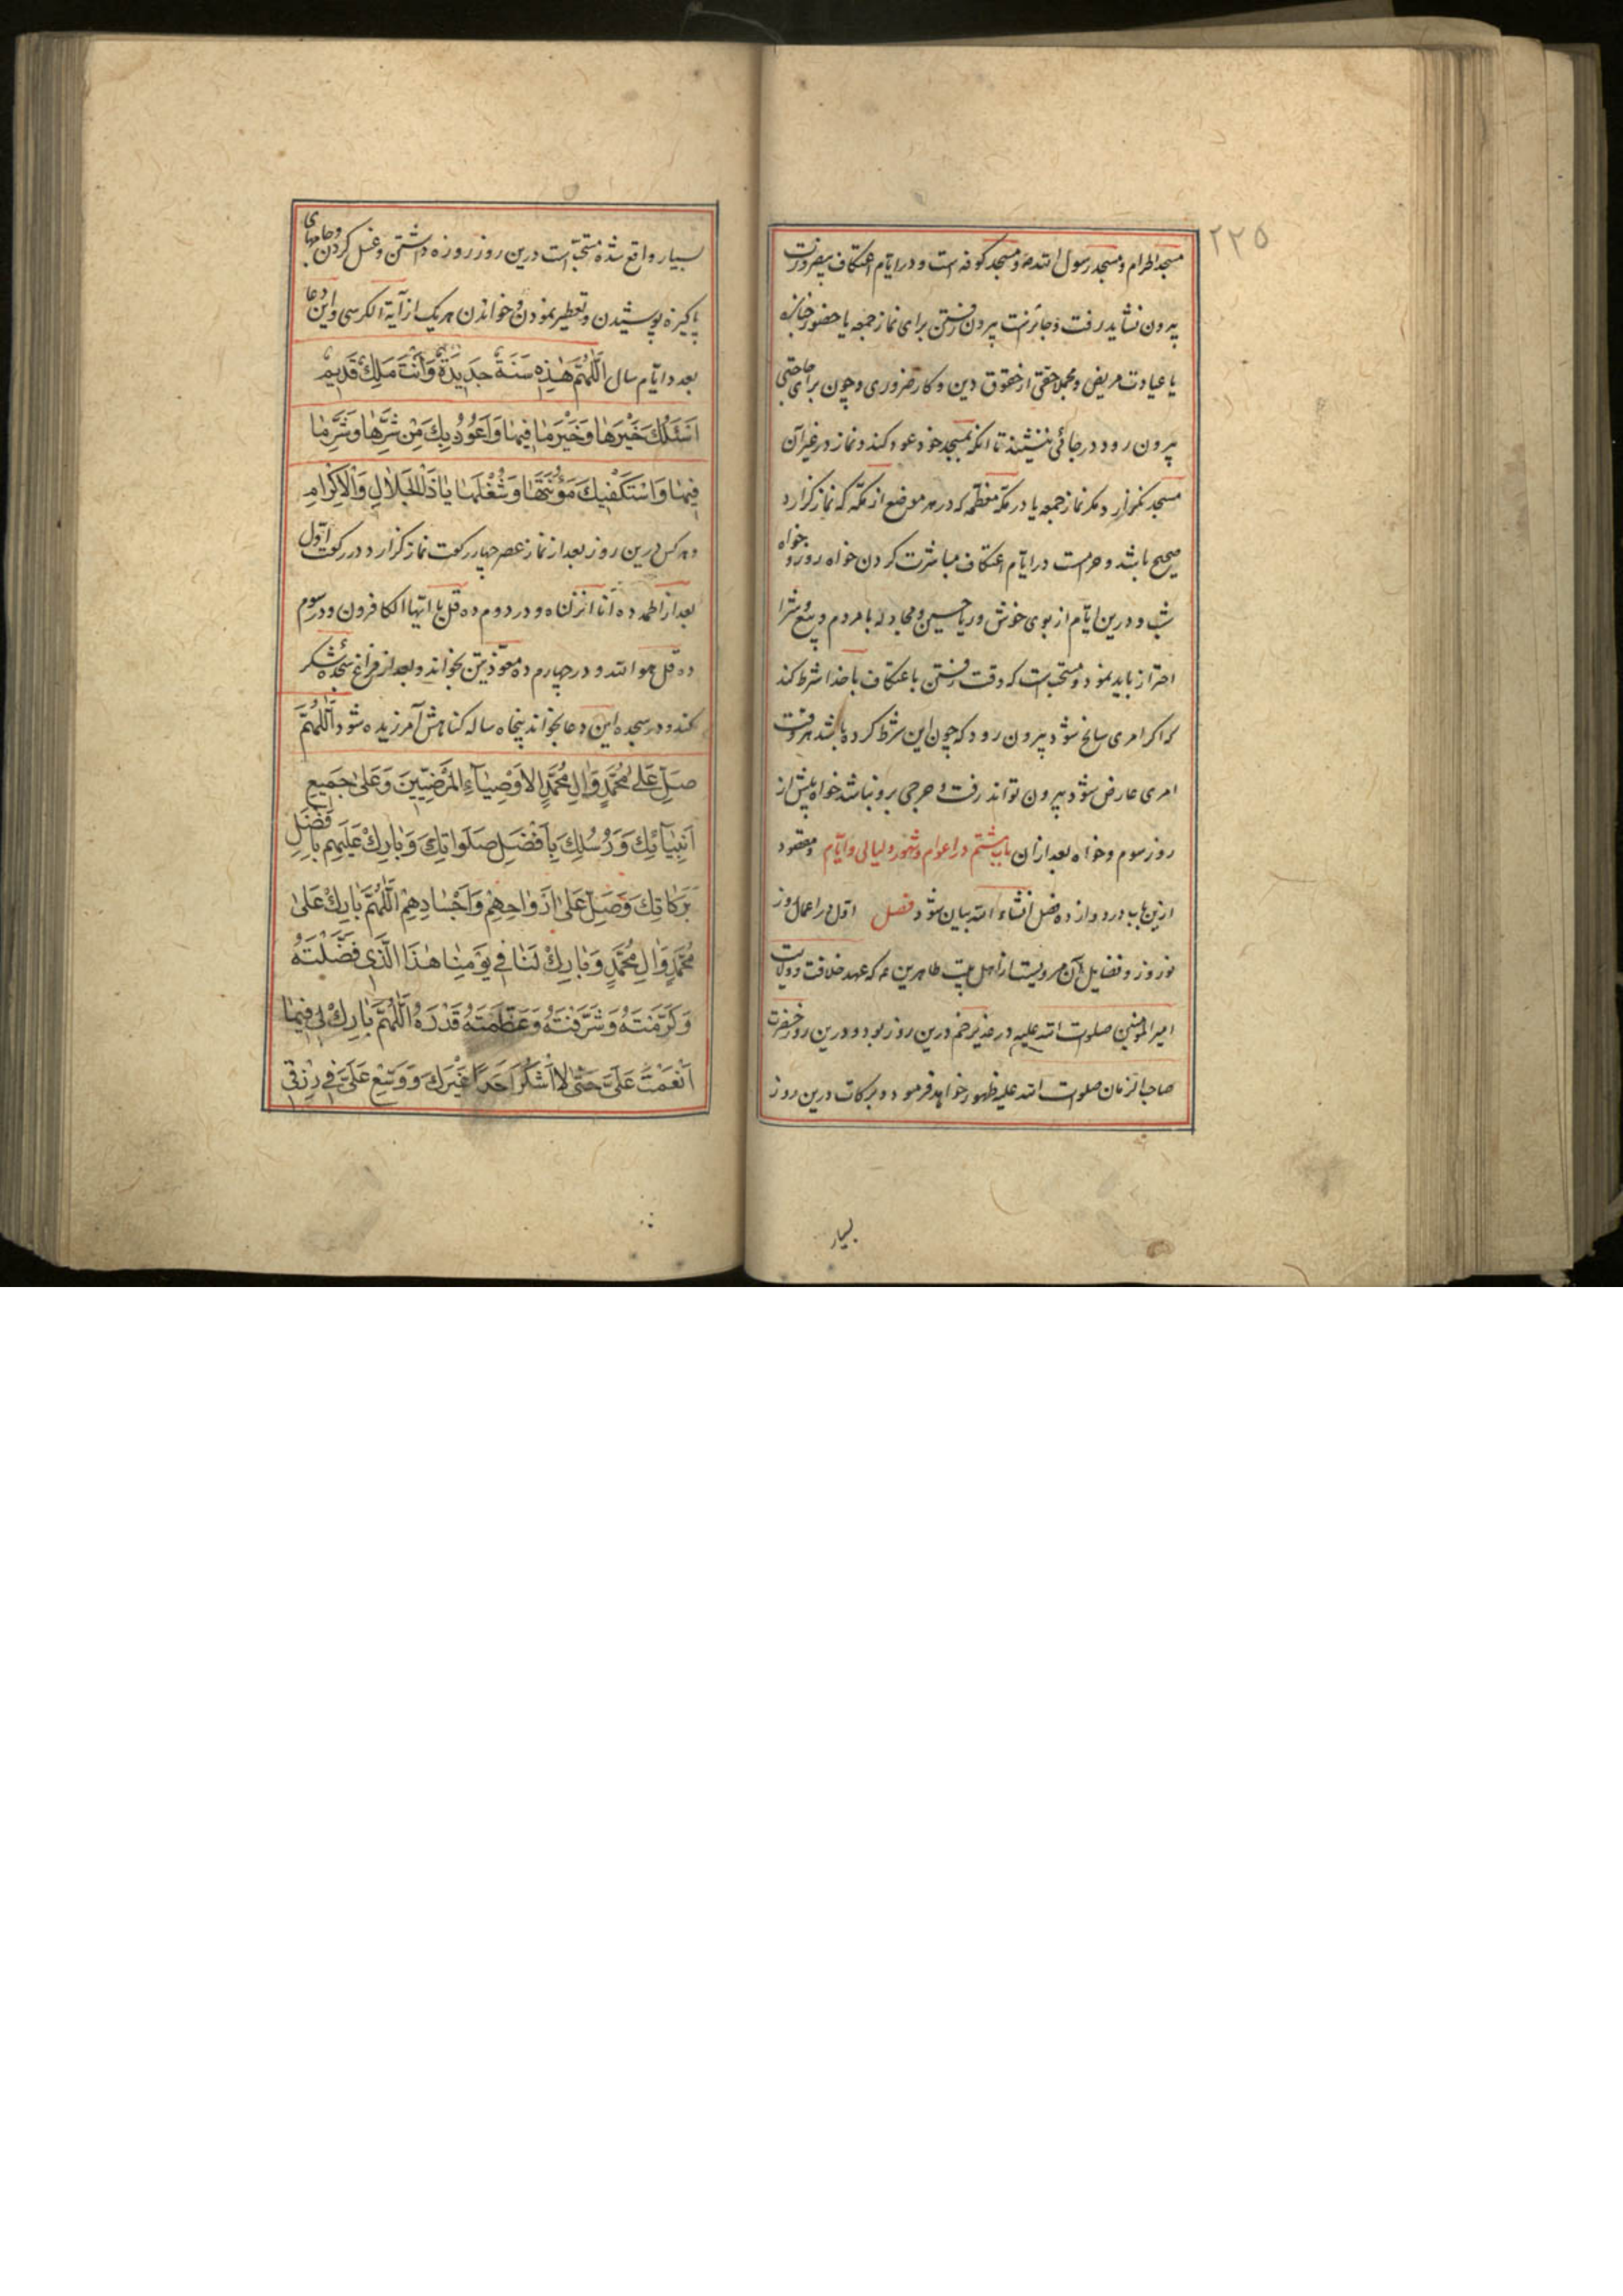 ۲۲۵
مسجد الحرام و مسجد رسول الله ص و مسجد کوفه است و در ایام اعتکاف بیضرورت
بیرون نشاید رفت و جائز نیست بیرون رفتن برای نماز جمعه یا حضور جنازه
یا عیادت مریض و مجملا حقی از حقوق دین و کار ضروری و چون برای حاجتی
بیرون رود در جائی ننشیند تا آنکه بمسجد خود عود کند و نماز در غیر آن
مسجد نگزارد مگر نماز جمعه یا در مکه معظمه که در هر موضع از مکه که نماز گزارد
صحیح باشد و حرمست در ایام اعتکاف مباشرت کردن خواه روز و خواه
شب و درین ایام از بوی خوش و ریاحین و مجادله با مردم و بیع و شرا
احتراز باید نمود و مستحب است که وقت رفتن باعتکاف با خدا شرط کند
که اگر امری سانح شود بیرون رود که چون این شرط کرده باشد هر وقت
امری عارض شود بیرون تواند رفت و حرجی برو نباشد خواه پیش از
روز سوم و خواه بعد از آن باب هشتم در اعوام و شهور و لیالی و ایام و مقصود
ازین باب در دوازده فصل انشاء الله بیان شود فصل اول در اعمال روز
نوروز و فضایل آن مرویست از اهل بیت طاهرین ع که عهد خلافت و ولایت
امیر المؤمنین صلوات الله علیه در غدیر خم درین روز بود و درین روز حضرت
صاحب الزمان صلوات الله علیه ظهور خواهد فرمود و برکات درین روز
بسیار
بسیار واقع شده مستحب است درین روز روزه داشتن و غسل کردن و جامهای
پاکیزه پوشیدن و تعطیر نمودن و خواندن هر یک از آیة الکرسی و این دعا
بعدد ایام سال اَللّٰهُمَّ هٰذِهِ سَنَةٌ جَدِیدَةٌ وَاَنْتَ مَلِكٌ قَدِیمٌ
اَسْئَلُكَ خَیْرَهَا وَخَیْرَ مَا فِیهَا وَاَعُوذُ بِكَ مِنْ شَرِّهَا وَشَرِّ مَا
فِیهَا وَاَسْتَكْفِیكَ مَؤُنَتَهَا وَشُغْلَهَا یَا ذَا الْجَلَالِ وَالْاِكْرَامِ
و هر کس درین روز بعد از نماز عصر چهار رکعت نماز گزارد در رکعت اول
بعد از الحمد ده انا انزلناه و در دوم ده قل یا ایها الکافرون و در سوم
ده قل هو الله و در چهارم ده معوذتین بخواند و بعد از فراغ سجده شکر
بکند و در سجده این دعا بخواند پنجاه ساله گناهش آمرزیده شود اَللّٰهُمَّ
صَلِّ عَلٰی مُحَمَّدٍ وَاٰلِ مُحَمَّدٍ الْاَوْصِیَآءِ الْمَرْضِیِّینَ وَعَلٰی جَمِیعِ
اَنْبِیَآئِكَ وَرُسُلِكَ بِاَفْضَلِ صَلَوَاتِكَ وَبَارِكْ عَلَیْهِمْ بِاَفْضَلِ
بَرَكَاتِكَ وَصَلِّ عَلٰی اَرْوَاحِهِمْ وَاَجْسَادِهِمْ اَللّٰهُمَّ بَارِكْ عَلٰی
مُحَمَّدٍ وَاٰلِ مُحَمَّدٍ وَبَارِكْ لَنَا فِی یَوْمِنَا هٰذَا الَّذِی فَضَّلْتَهُ
وَكَرَّمْتَهُ وَشَرَّفْتَهُ وَعَظَّمْتَ قَدْرَهُ اَللّٰهُمَّ بَارِكْ لِی فِیمَا
اَنْعَمْتَ عَلَیَّ حَتّٰی لَا اَشْكُرَ اَحَدًا غَیْرَكَ وَوَسِّعْ عَلَیَّ فِی رِزْقِی